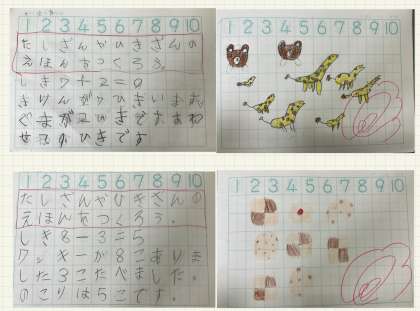 1 2 3 4 5 6 7 8 9 10
たしざんやひきざんの
えほんをつくろう。
しき7+2=9
きりんが7ひきいます
くまが2ひきです あわ
せて9ひきです
1 2 3 4 5 6 7 8 9 10
1 2 3 4 5 6 7 8 9 10
たしざんやひきざんの
えほんをつくろう。
しき8-3=5
クッキーが8こありま
した3こたべました。
のこりは5こです。
1 2 3 4 5 6 7 8 9 10